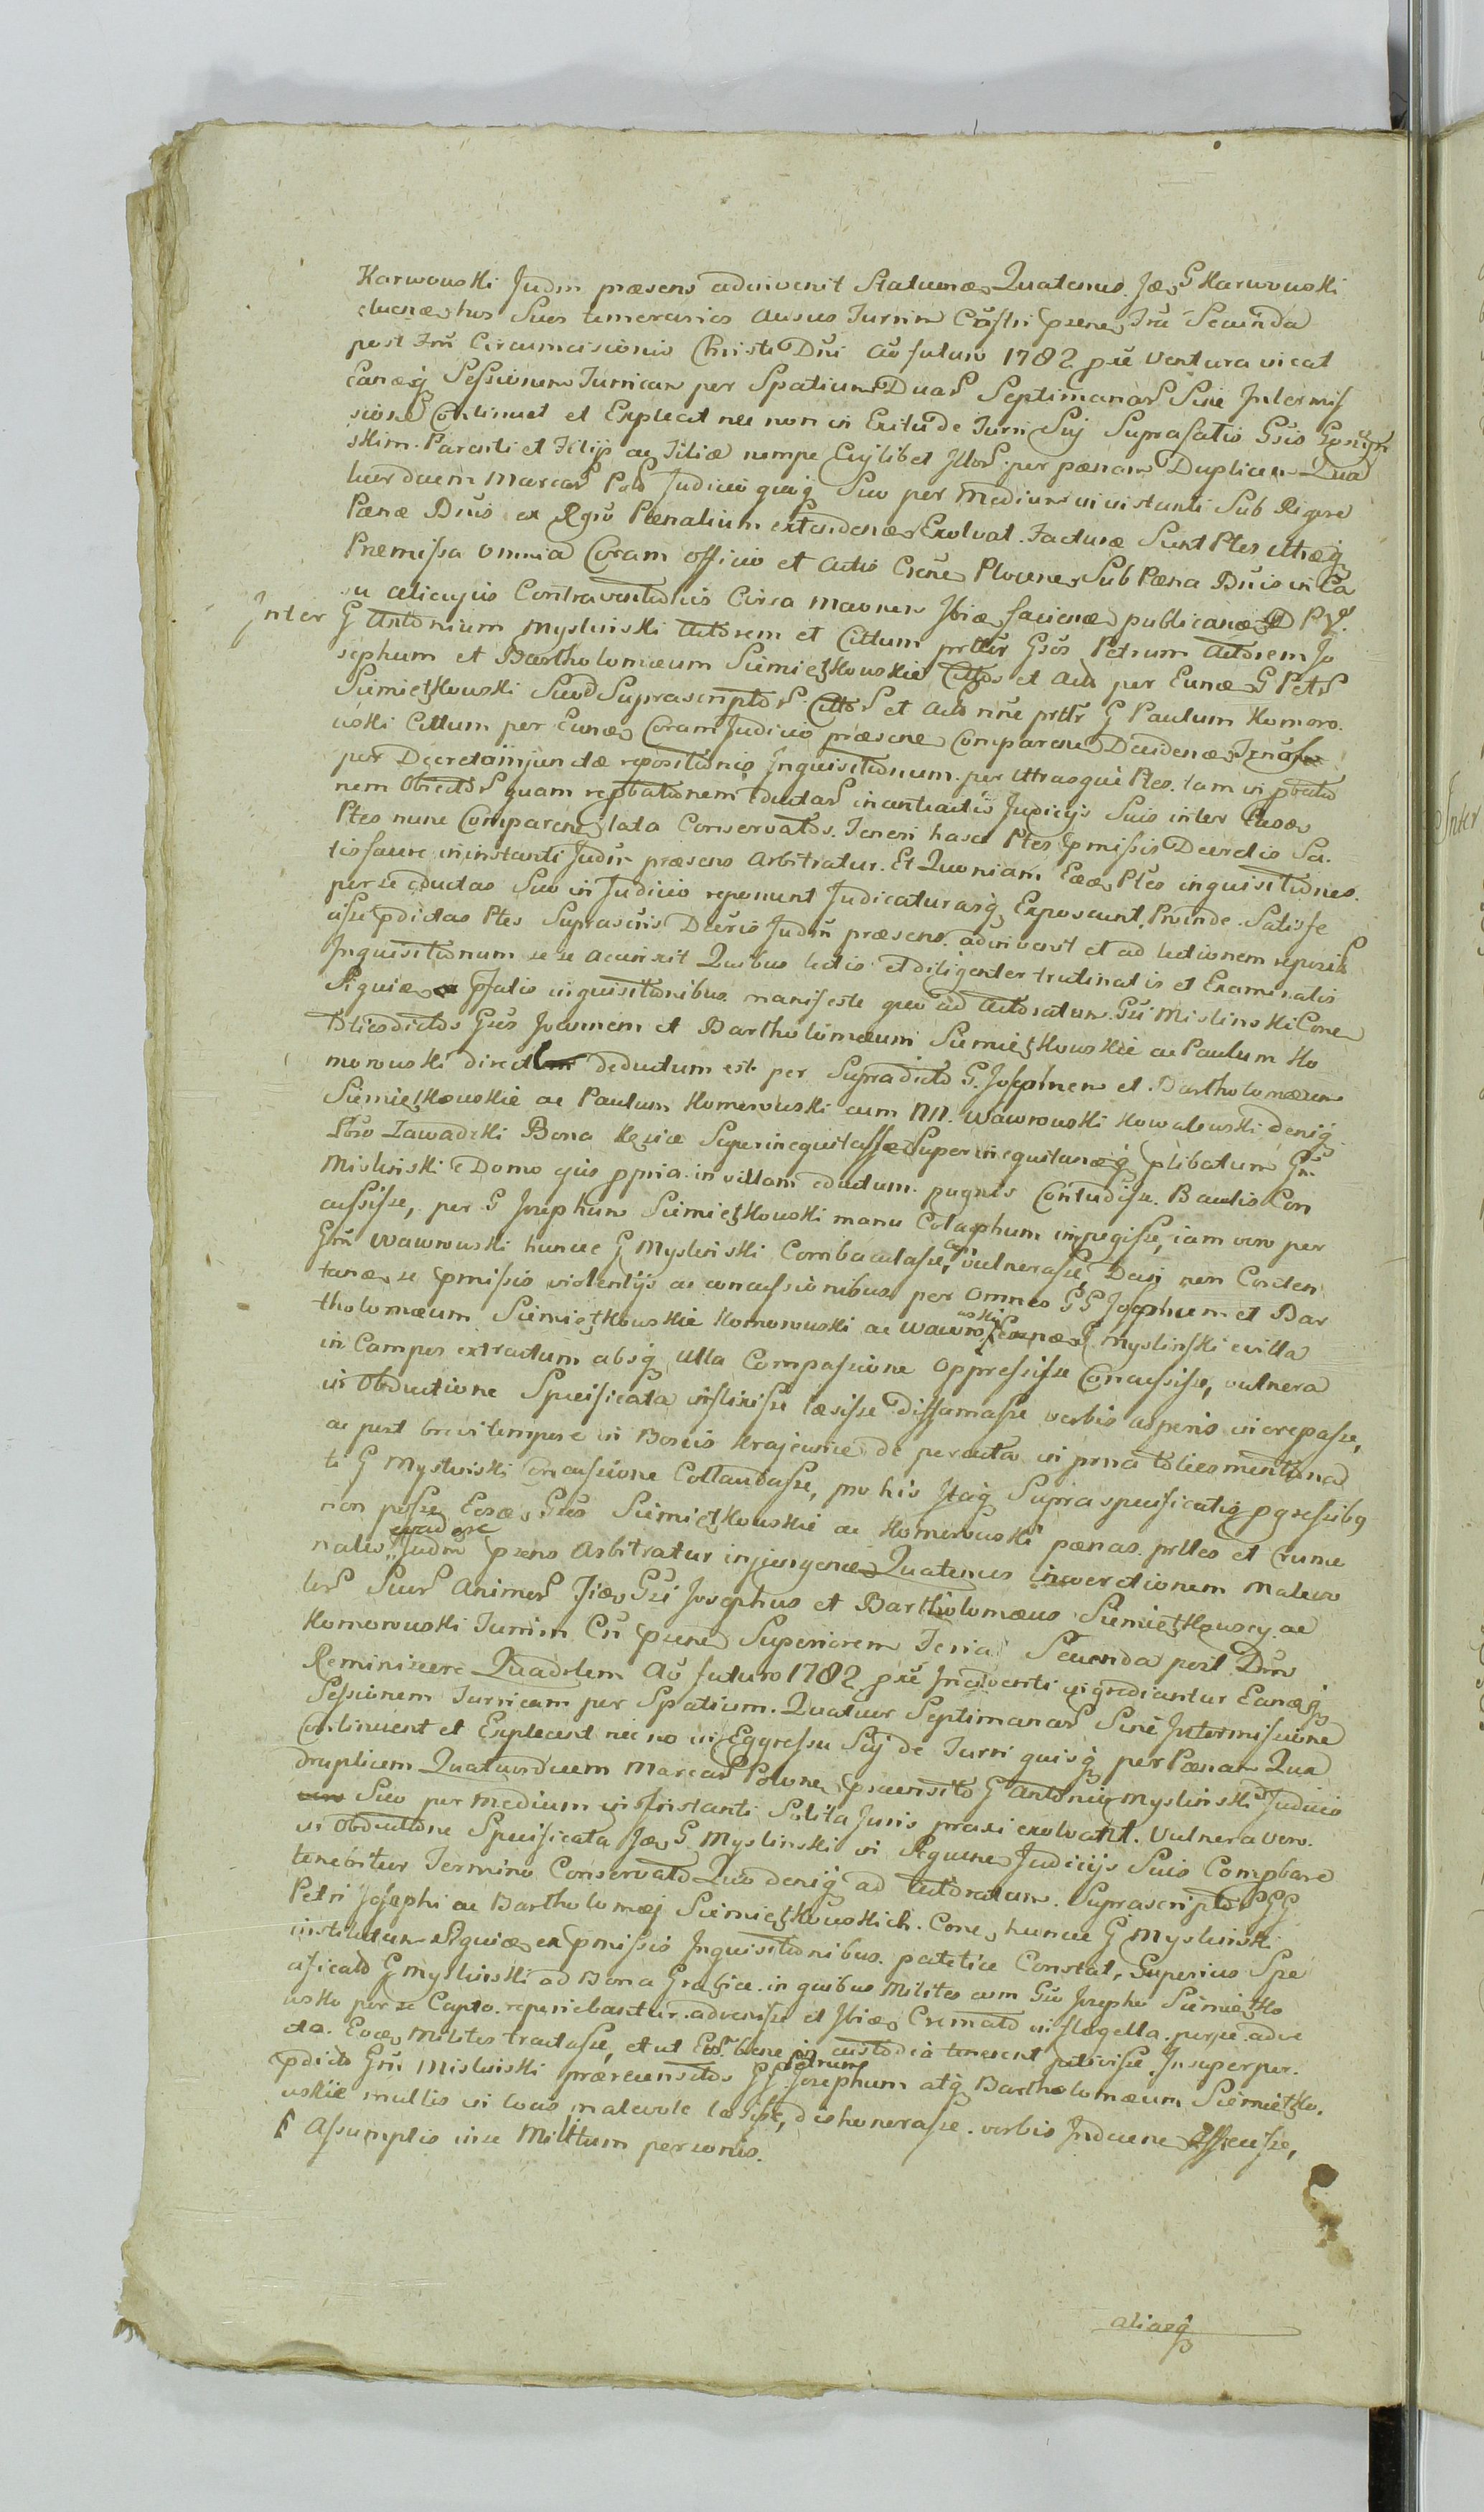 Karwowski Judm præsens adinvenit Statuend Quatenus Jd G Karwowski
luend hos Suos temerarios Ausus Turrim Castri psene Fria Secunda
post Frm Circumcisionis Christi Dni Ao futuro 1782 pre ventura incat
Eandq Sessionem Turricam per Spatium Duar Septimanar Sine Intermis
sione Continuet et Expleat nec non in Exitu de Turri Suj Suprafatis Gsis
skim. Parenti et Filijs ac Filiæ nempe Cujlibet Jllor per pænam Duplicem Qua
tuordecim Marcar Pold Judicio quoq Suo per Medium in instanti Sub Rigore
Pænæ Bnis ex Rgro Pænalium extendend Exolvat. Facturæ Sunt Ptes utræq
Præmissa omnia Coram officio et Actis Crene Plocene Sub Pæna Bnis in Ca
su alicujus Contraventionis Circa Maonem Ibid faciend publicand D P
Inter G Antonium Myslinski Actorem et Cittum prttr Gsos Petrum Actorem Jo
sephum et Bartholomæum Siemiętkowskie Cittos et Acto per Eund G Petr
Siemiętkowski Suod Suprascriptor Cittor et Acto nne prttr G Paulum Komoro
wski Cittum per Eund Coram Judicio præsene Comparene Decidend
per Decreta injunctæ repositionis Inquisitionum per utrasque Ptes tam in pbatio
nem Obiector quam repbationem eductar in anteactis Judicijs Suis inter Easd
Ptes nunc Comparene lata Conservatos. Teneri hasce Ptes pmissis Decretis Sa
tisfacere in instanti Judm præsens Arbitratur. Et Quoniam Eæd Ptes inquisitiones
per se eductas Suo in Judicio reponunt Judicaturasq Exposcunt, Proinde Satisfe
cisse pdictas Ptes Suprascris Decris Judm præsens adinvenit et ad lectionem reposit
Inquisitionum se se accinxit Quibus lectis et diligenter trutinatis et Examinatis
Siquid pfatis inquisitionibus manifeste quo ad Actoratum Gsi Mislinski Cone
toties dictos Gsos Joannem et Bartholomæum Siemiętkowskie ac Paulum Ko
morowski direct deductum est per Supradicto G. Josephum et Bartholomæum
Siemiętkowskie ac Paulum Komorowski cum NN. Wawrowski Kowalewski deniq
Zawadzki Bona Superinequitasse Superinequitandq plibatum Gm
Mislinski e Domo ejus ppria in villam eductum pugnis Contudisse. Baculis Con
cussisse, per G Josephum Siemiętkowski manu Colaphum impegisse, iam vero per
Gsm Wawrowski hunce G Myslinski Combaculasse, ac vulnerasse, Dein non Conten
tand se pmissis violentijs ac concussionibus per Omnes GG Josephum et Bar
tholomæum Siemiętkowskie Komorowski ac Wawrowski Eund G Myslinski e villa
in Campos extractum absq Ulla Compassione Oppressisse Concussisse, vulnera
in Obductione Specificata inflixisse læsisse diffamasse verbis asperis increpasse,
ac post brevi tempore in Boncis Krajewice de percuta in pma toties mentiona
to G Myslinski concussione Collaudasse, pro his Itaq Supra specificatis pgressibq
non posse Eosd Gsos Siemiętkowskie ac Komorowski pænas prttes et Crimi
nales evadere Judm psens Arbitratur injungend Quatenus invectionem malevo
lor Suor Animor Jid Gsi Josephus et Bartholomæus Siemiętkowscy ac
Komorowski Turrim Cri psene Superiorem Feria Secunda post Dm
Reminiscere Quadrlem Ao futuro 1782 pre Incidenti ingrediantur Eandq
Sessionem Turricam per Spatium Quatuor Septimanar Sine Intermissione
Continuent et Expleant nec no in Eggressu Suj de Turri quisq per Pænam Qua
druplicem Quatuordecim Marcar Polone præinsito G Antonio Myslinski Judicio
Suo per Medium in Instanti Solita Juris praxi exolvant. Vulnera vero
in Obductione Specificata Jd G. Myslinski in Sequene Judicijs Suis Compbare
tenebitur Termino Conservato Quo deniq ad Actoratum Suprascriptor GG
Petri Josephi ac Bartholomæj Siemiętkowskich Cone hunce G Myslinski
institutum Siquid ex pmissis Inquisitionibus patetice Constat, Superius Spe
cificato G Myslinski ad Bona in quibus Milites cum Gso Josepho Siemiętko
wski per se Capto reperiebantur advenisse et Ibid Cremato in flagella per se adve
cta Eosd Milites tractasse, et ut Eos bene in custodia tenerent petivisse. Insuper per
pdicto Gsm Mislinski præcensitos GG Petrum Josephum atq Bartholomæum Siemiętko
wskie multis in locis malevole læsisse, dishonerasse verbis Indecene Affecisse,
Assumptis in se Militum personis.
aliasq
Inter